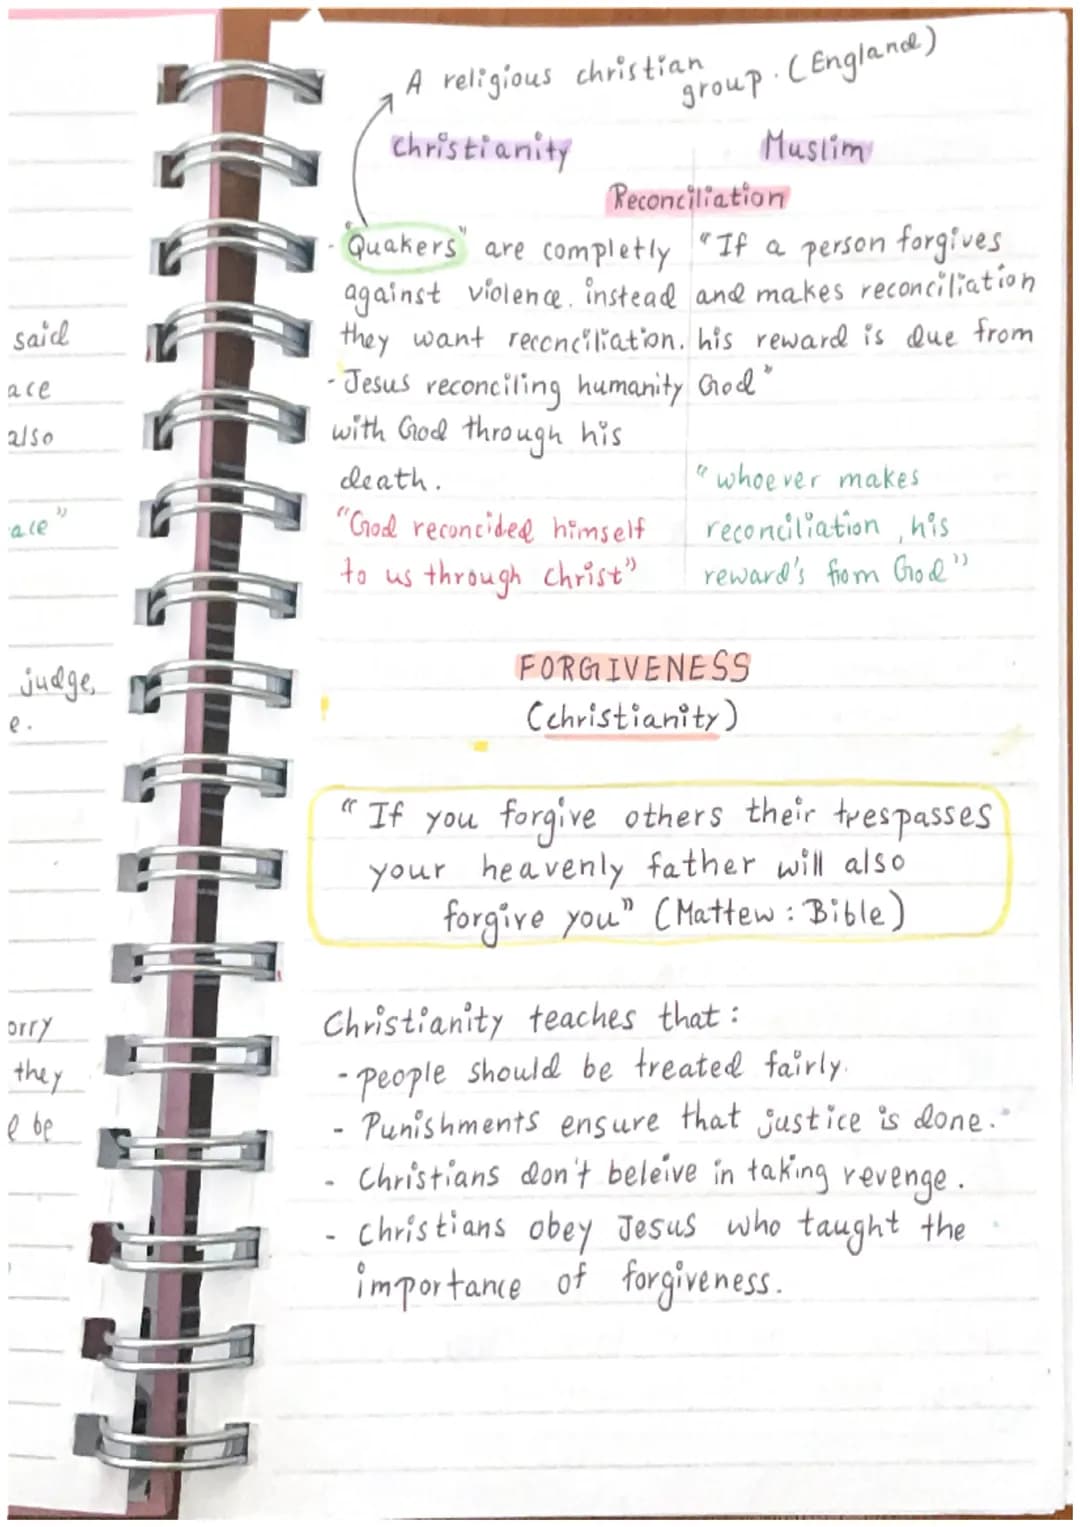 A religious christian
group. (England)
Christianity
Muslim
Reconciliation
- "Quakers" are completly
against violence. instead
they want reconciliation.
- Jesus reconciling humanity
with God through his
death.
"God reconcided himself
to us through Christ"
"If a person forgives
and makes reconciliation
his reward is due from
God"
"whoever makes
reconciliation, his
reward's from God"
FORGIVENESS
(christianity)
"If you forgive others their trespasses
your heavenly father will also
forgive you" (Mattew : Bible)
Christianity teaches that :
- people should be treated fairly.
- Punishments ensure that justice is done.
- Christians don't beleive in taking revenge.
- Christians obey Jesus who taught the
importance of forgiveness.
said
ace
also
ace"
judge,
e.
orry
they
be